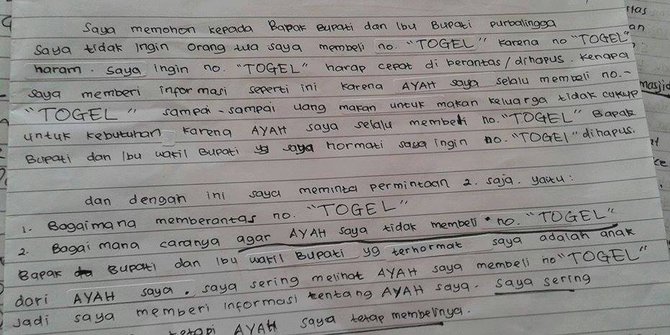 Saya memohon kepada Bapak Bupati dan Ibu Bupati purbalingga
Saya tidak ingin orang tua saya membeli no. "TOGEL" karena no "TOGEL"
haram. saya ingin no. "TOGEL" harap cepat di berantas/dihapus. kenapa
saya memberi informasi seperti ini karena AYAH saya selalu membali no.-
"TOGEL" sampai-sampai uang makan untuk makan keluarga tidak cukup
untuk kebutuhan karena AYAH saya selalu membeli no."TOGEL" Bapak
Bupati dan Ibu wakil Bupati yg saya hormati saya ingin no."TOGEl" dihapus.
dan dengan ini saya meminta permintaan 2. saja. yaitu:
1. Bagaimana memberantas no. "TOGEL"
2. Bagai mana caranya agar AYAH saya tidak membeli no. "TOGEL"
Bapak Bupati dan Ibu wakil Bupati yg terhormat saya adalah anak
dari AYAH saya. saya sering melihat AYAH saya membeli no"TOGEL"
Jadi saya memberi informasi tentang AYAH saya. saya sering
tetapi AYAH saya tetap membelinya.